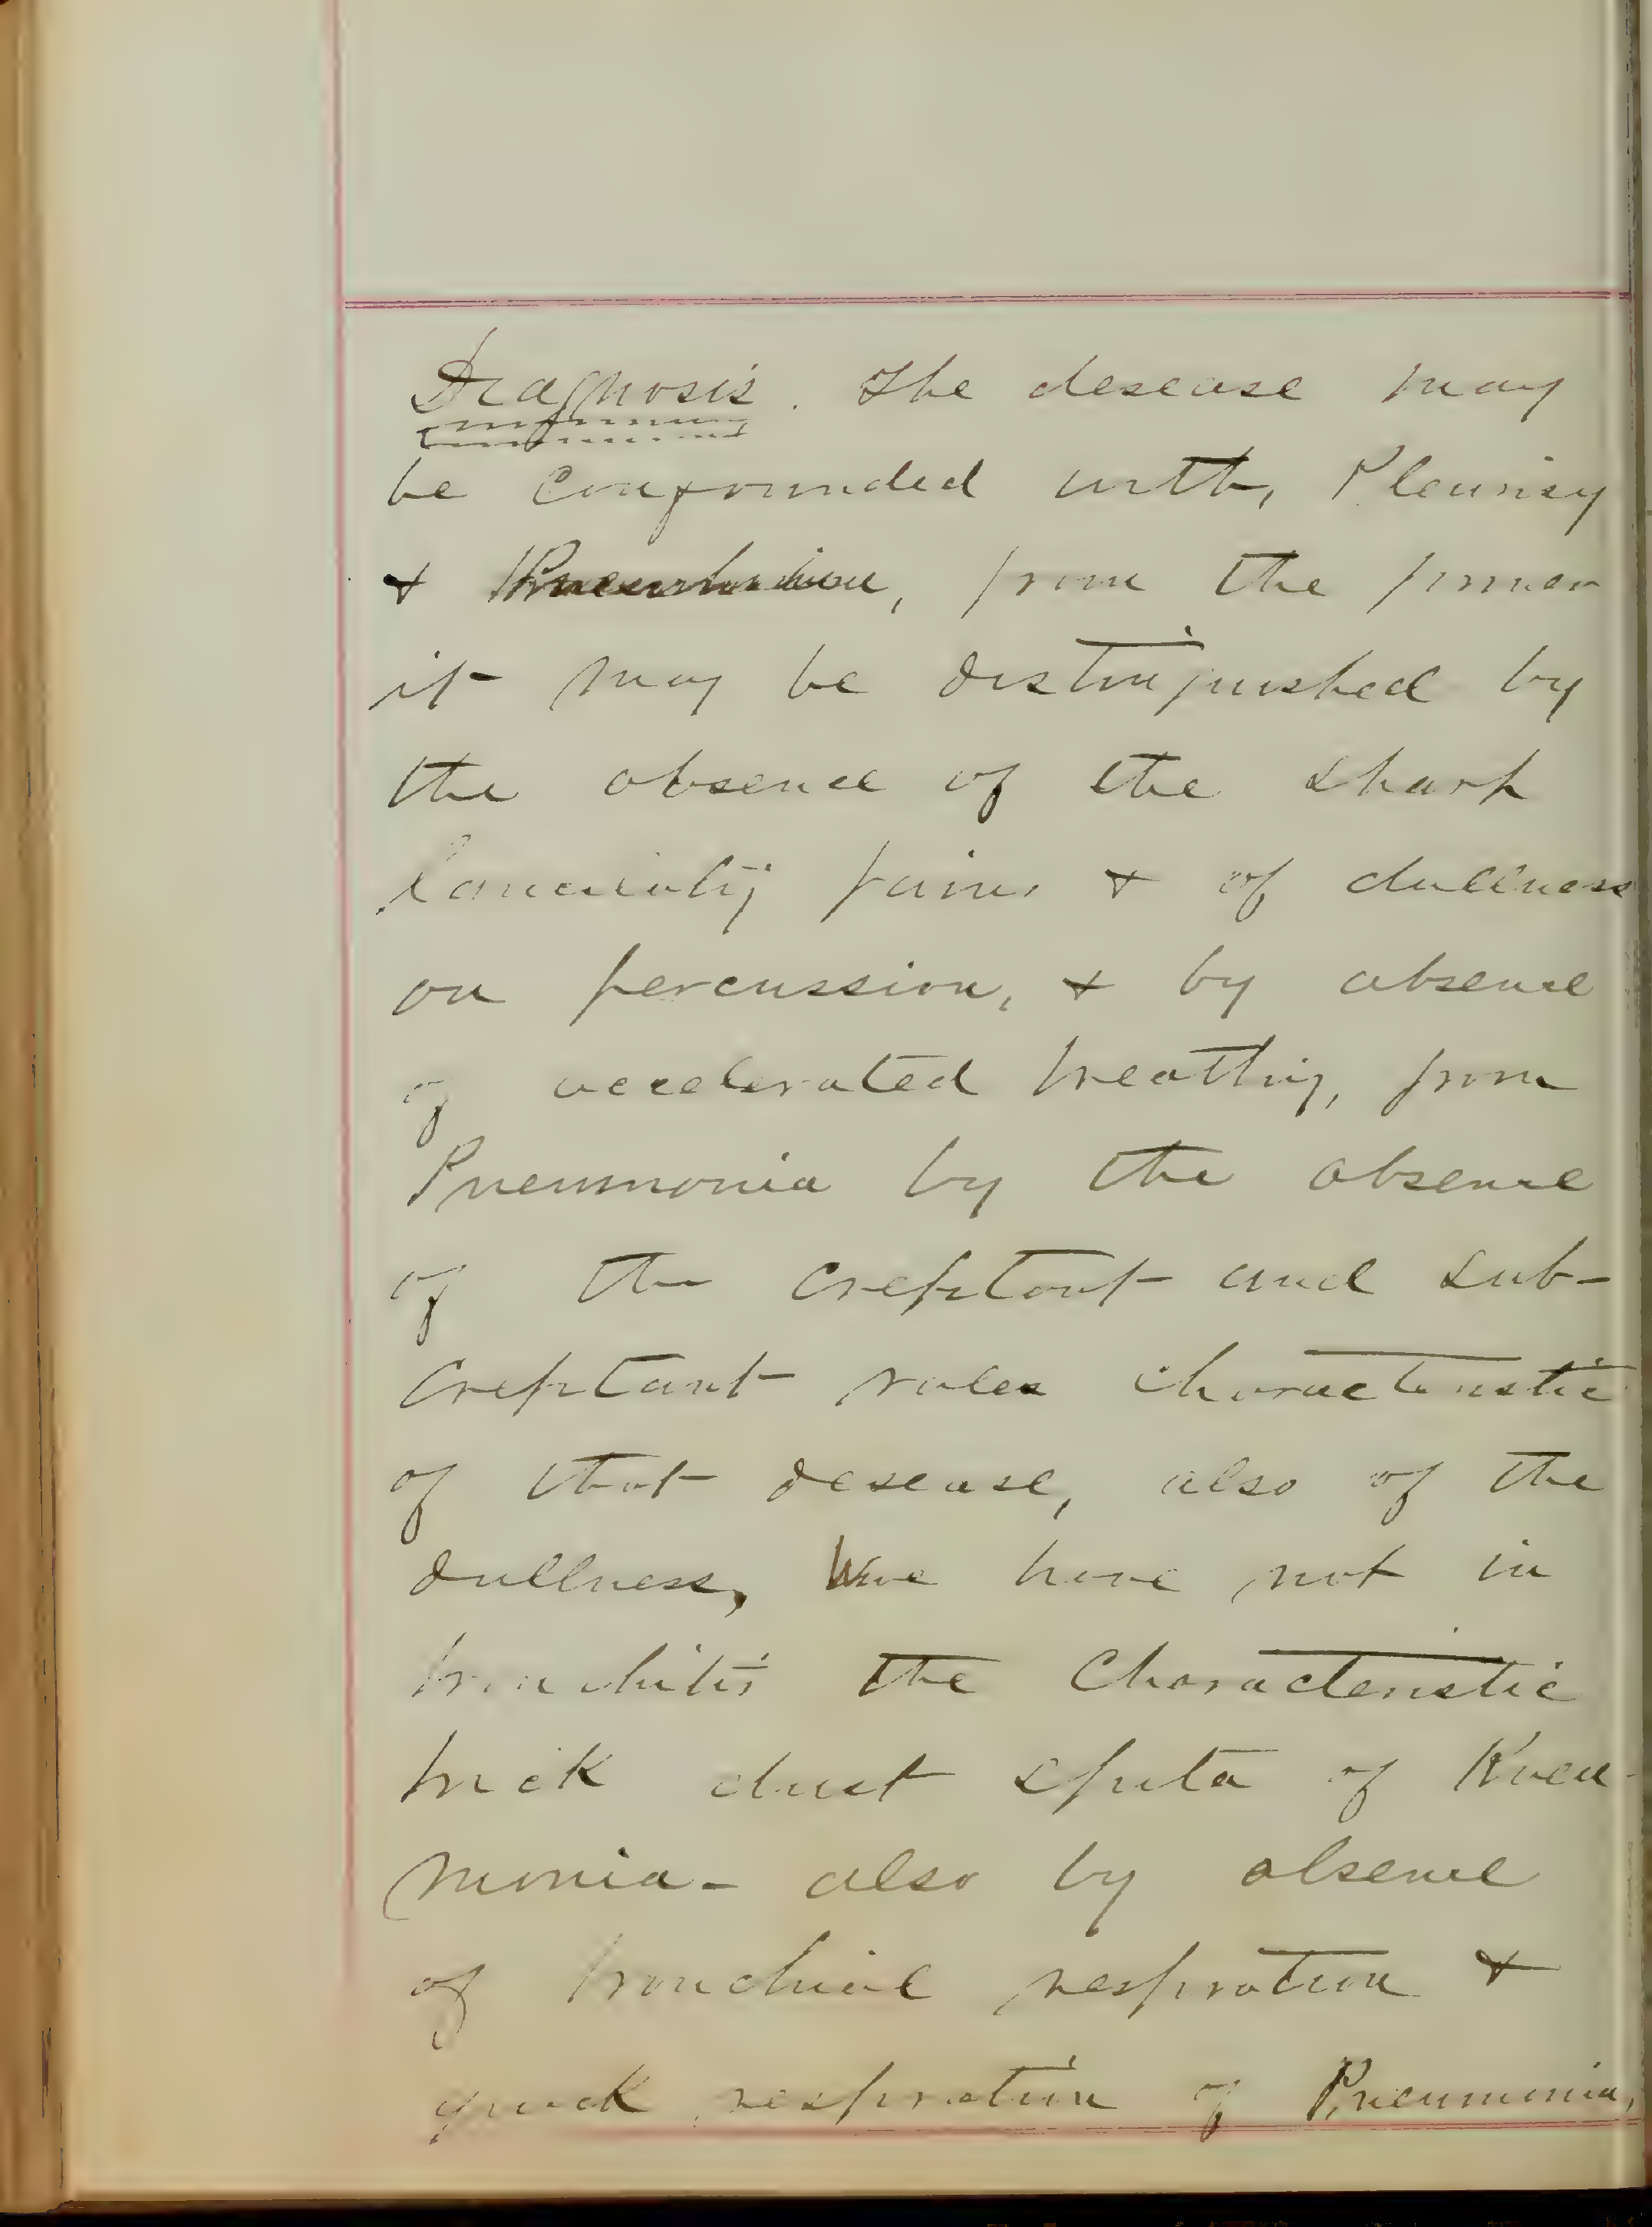 Diagnosis. The desease may
be confounded with, Pleurisy
& Pneumonia, from the former
it may be distinguished by
the absence of the sharp
lanciatig pains & of dullness
on percussion, & by absence
of accelerated breathing, from
Pneumonia by the absence
of the creptant and sub-
creptant rales characteristic
of that desease, also of the
dullness, We have not in
bronchitis the Characteristic
brick dust sputa of Pneu-
monia - also by absence
of bronchial respration &
quick respration of Pneumonia,